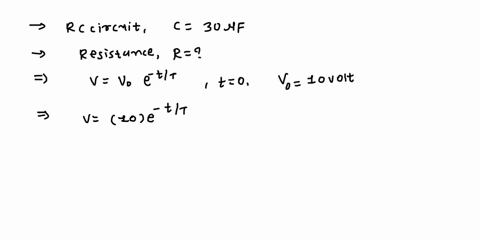 → RC circuit, C = 30 μF
→ Resistance, R = ?
⇒ V = V₀ e^{-t/τ}, t = 0. V₀ = 10 volt
⇒ V = (10) e^{-t/τ}